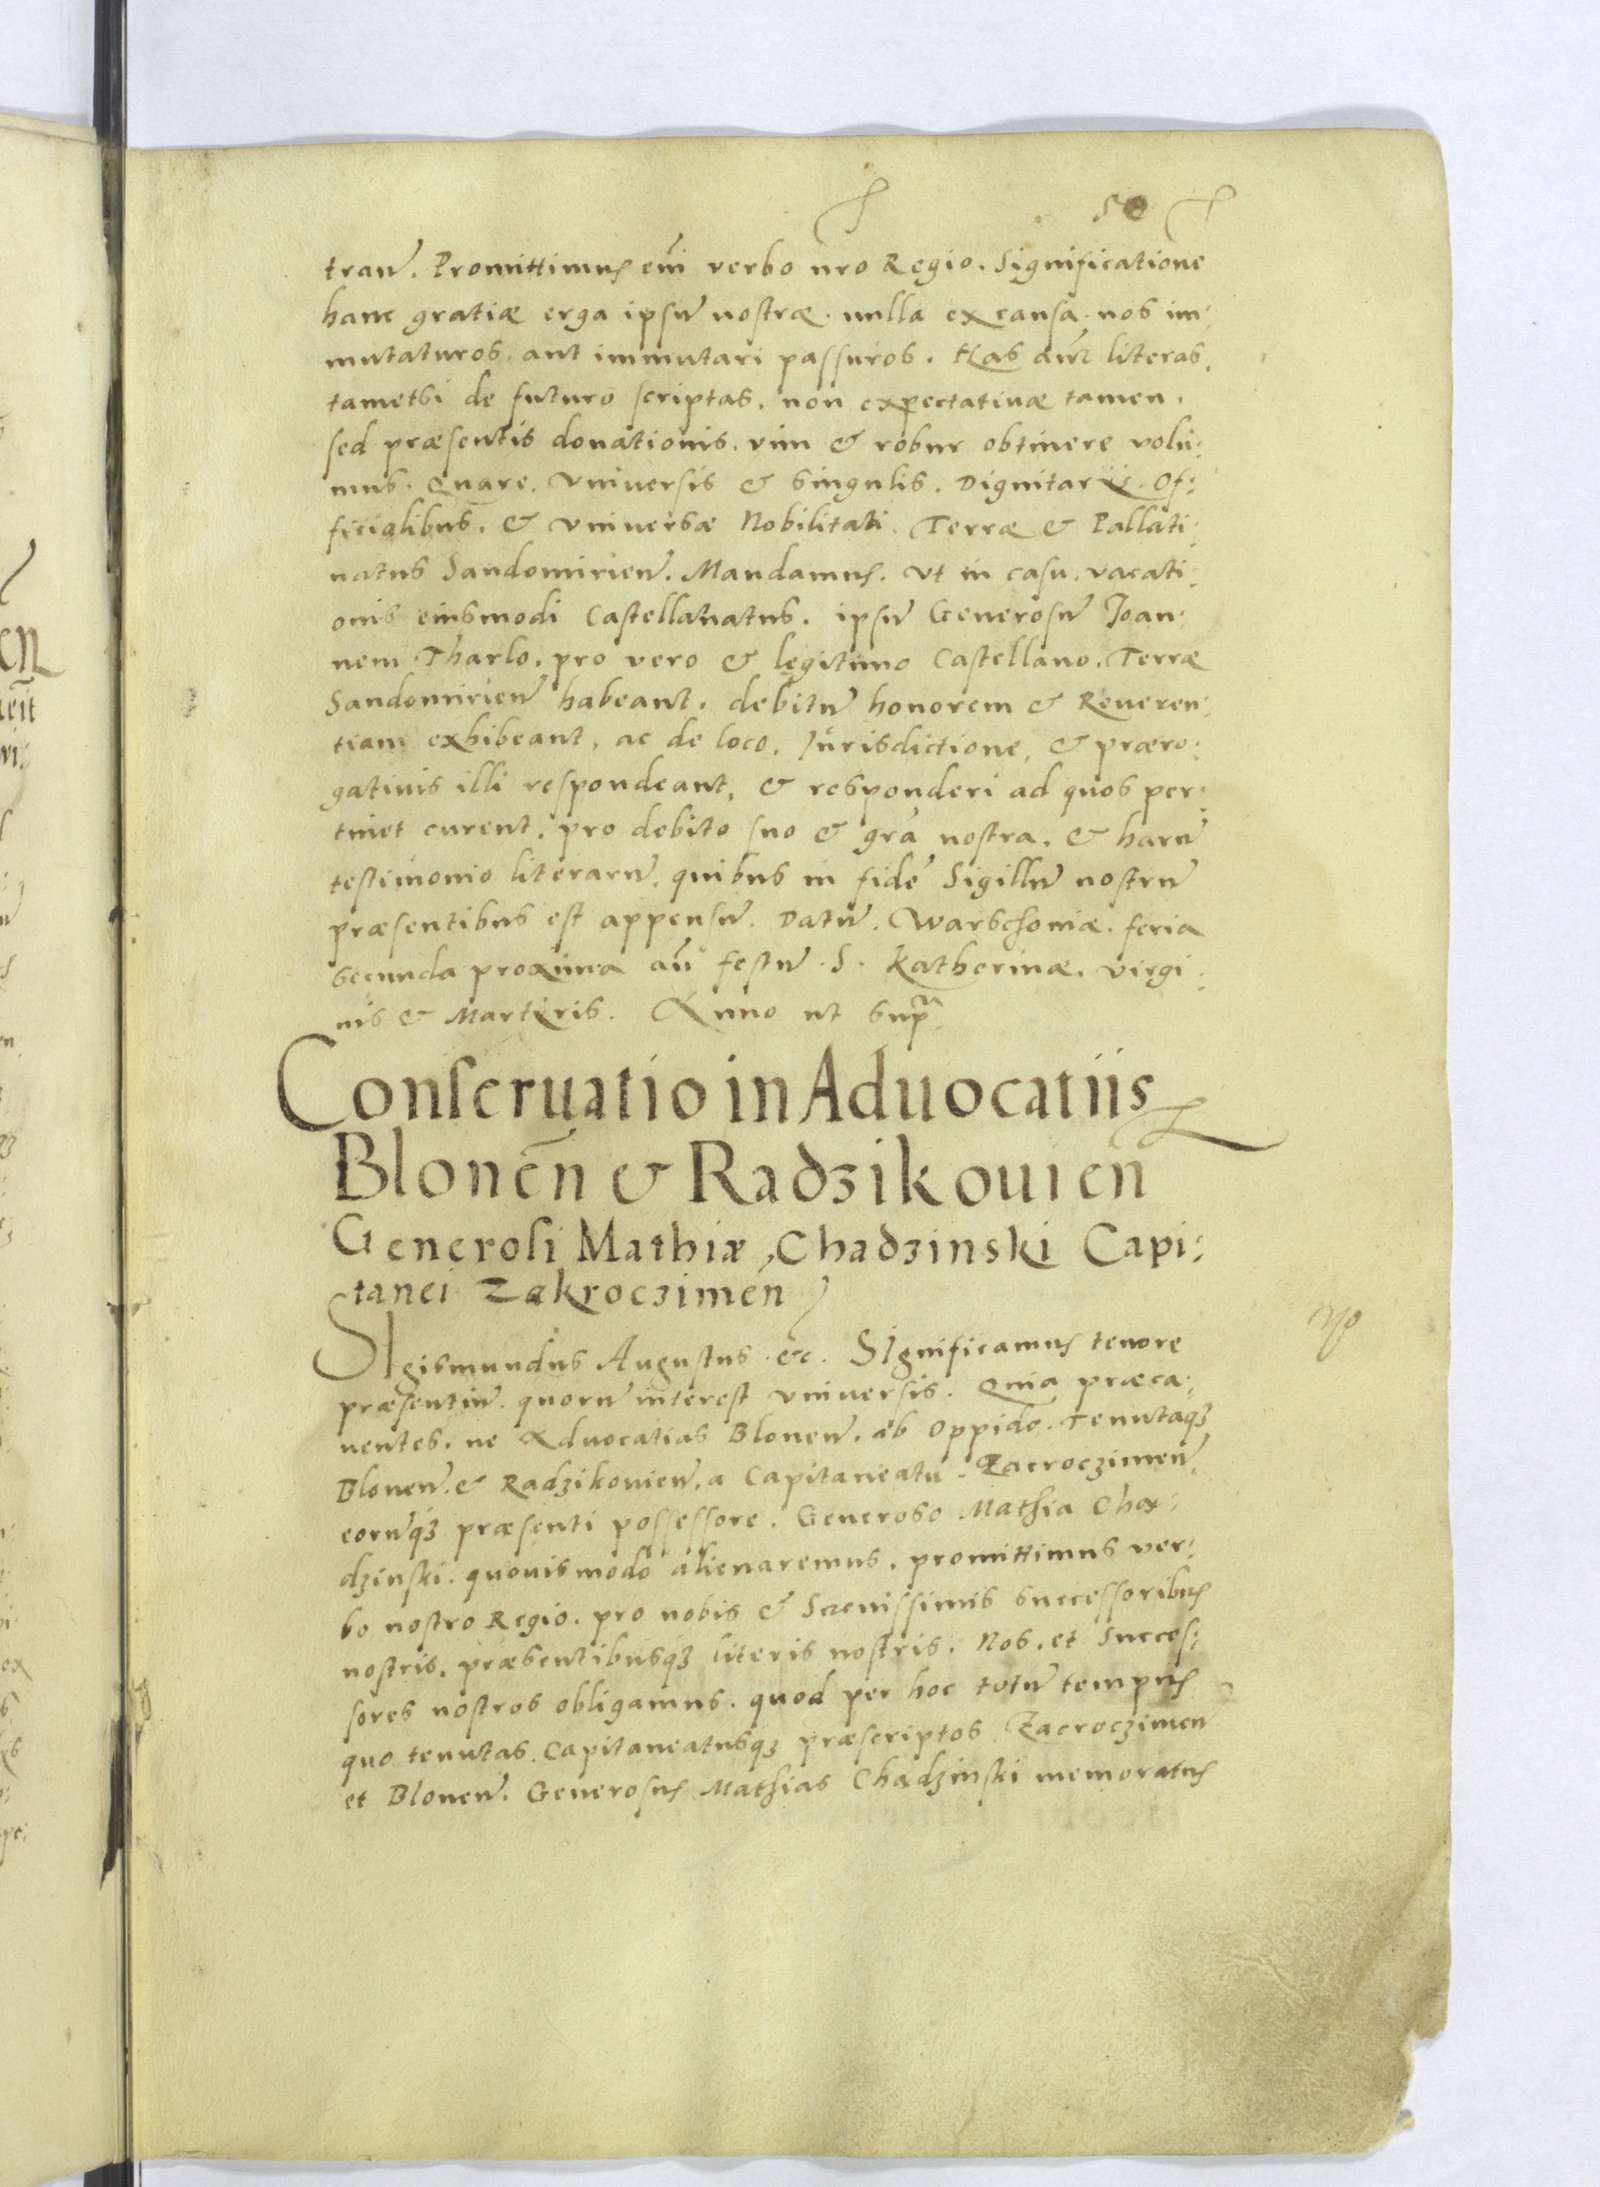 50
tran̄. Promittimus em̄ verbo nro Regio. Significatione
hanc gratiæ erga ipsū nostræ. nulla ex causa. nos im:
mutaturos. aut immutari passuros. Has aūt literas.
tametsi de futuro scriptas. non expectatiuæ tamen.
sed præsentis donationis. vim & robur obtinere volu:
mus. Quare. Vniuersis & singulis. Dignitariis. Of:
ficialibus. & Vniuersæ Nobilitati. Terræ & Pallati:
natus Sandomirien̄. Mandamus. Vt in casu. vacati:
onis eiusmodi Castellanatus. ipsū Generosū Joan:
nem Tharlo. pro vero & legitimo Castellano. Terræ
Sandomirien̄ habeant. debitū honorem & Reueren:
tiam exhibeant, ac de loco. Jurisdictione, & præro:
gatiuis illi respondeant, & responderi ad quos per:
tinet curent. pro debito suo & gra̅ nostra. & harū
testimonio literarū. quibus in fidē Sigillū nostrū
præsentibus est appensū. Datū. Warschouiæ. feria
secunda proxima an̄ festū. S. Katherinæ. virgi:
nis & Martiris. Anno ut supᵃ.
Conseruatio in Aduocatiis
Blonen̄ & Radzikouien
Generosi Mathiæ, Chadzinski Capi:
tanei Zakroczimen̄
SIgismundus Augustus. &c. SIgnificamus tenore
præsentiū. quorū interest vniuersis. Quia præca:
uentes. ne Aduocatias Blonen̄. ab Oppido. Tenutaqʒ
Blonen̄. & Radzikouien̄. a Capitaneatu. Zacroczimen̄.
eorūqʒ præsenti possessore. Generoso Mathia Cha:
dzinski. quouismodo alienaremus. promittimus ver:
bo nostro Regio. pro nobis & Serenissimis successoribus
nostris. præsentibusqʒ literis nostris. Nos. et Succes:
sores nostros obligamus. quod per hoc totū tempus
quo tenutas. Capitaneatusqʒ præscriptos Zacroczimen̄
et Blonen̄. Generosus Mathias Chadzinski memoratus